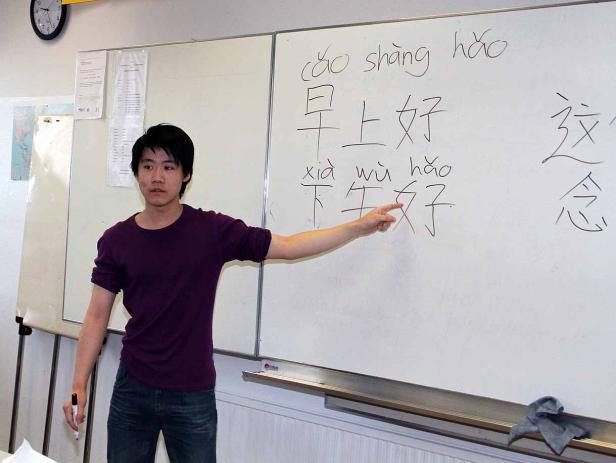 cǎo shàng hǎo
早上好
xià wù hǎo
下午好
这
念